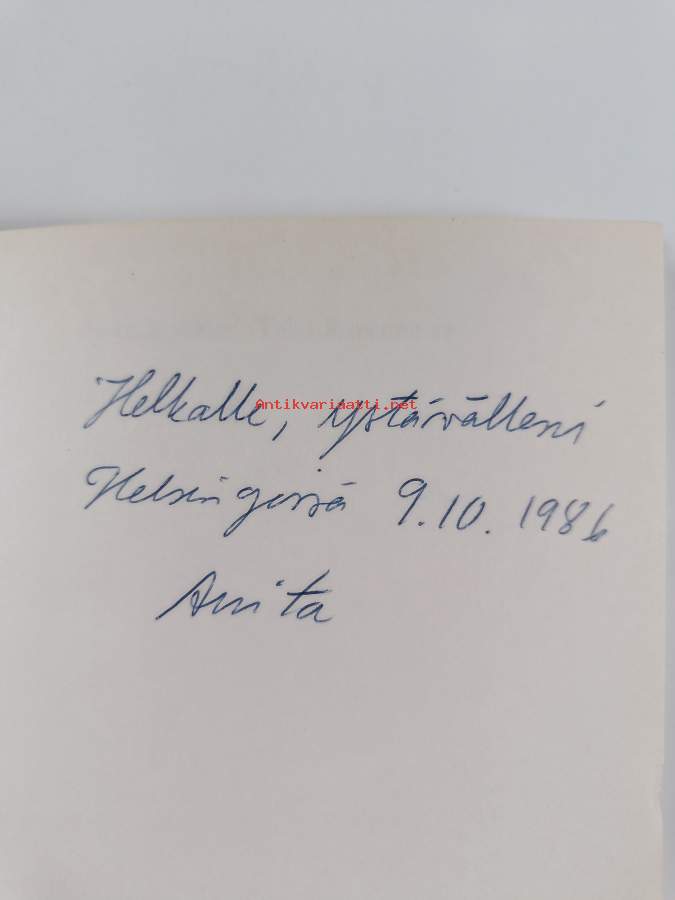 Helkalle, ystävälleni
Antikvariaatti.net
Helsingissä 9.10.1986
Anita